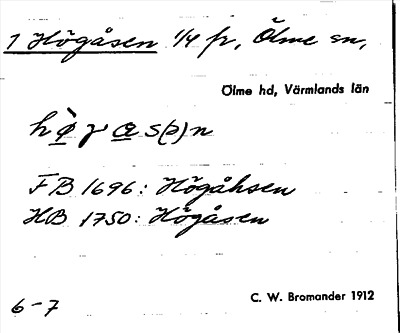 1 Högåsen 1/4 fr, Ölme sn,
Ölme hd, Värmlands län
hø̀γœs(ə)n
FB 1696: Högåhsen
HB 1750: Högåsen
6-7
C. W. Bromander 1912